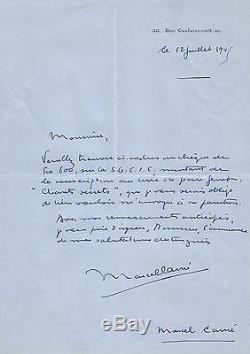 35. Rue Caulaincourt
le 12 juillet 1945
Monsieur,
Veuillez trouver ci-inclus un chèque de
frs 600, sur la S.G.C.I.C, montant de
la souscription au livre de
"Chants secrets", que je vous serais obligé
de bien vouloir m'envoyer à sa parution.
Avec mes remerciements anticipés,
je vous prie d'agréer, Monsieur, l'assurance
de mes salutations distinguées
Marcel Carné
Marcel Carné